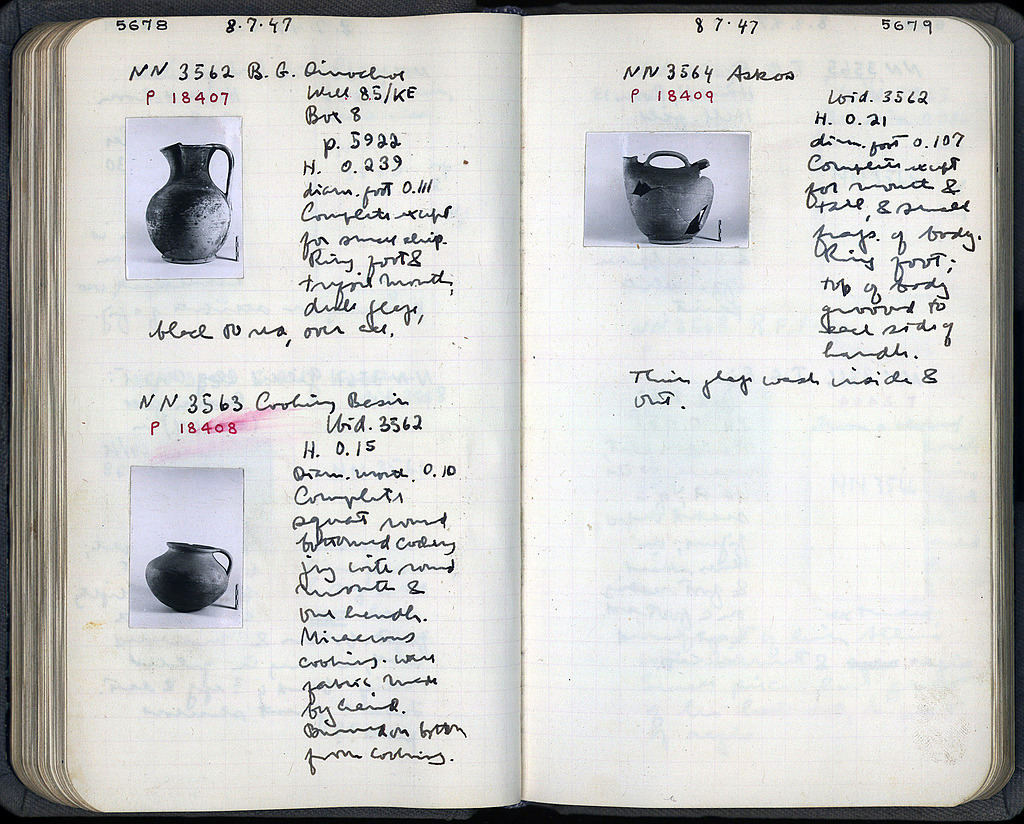 5678 8.7.47
NN 3562 B.G. Oinochoe
P 18407 Well 85/KE
Box 8
p. 5922
H. 0.239
diam. foot 0.111
Complete except
for small chip.
Ring foot &
trefoil mouth,
dull glaze,
black to red, over all.
NN 3563 Cooking Basin
P 18408 Ibid. 3562
H. 0.15
Diam. mouth. 0.10
Complete
squat round
bottomed cooking
jug with round
mouth &
one handle.
Micaceous
cooking-ware
fabric made
by hand.
Burned on bottom
from cooking.
87.47 5679
NN 3564 Askos
P 18409 Ibid. 3562
H. 0.21
diam. foot 0.107
Complete except
for mouth &
tail, & small
frags. of body.
Ring foot;
top of body
grooved to
each side of
handle.
Thin glaze wash inside &
out.